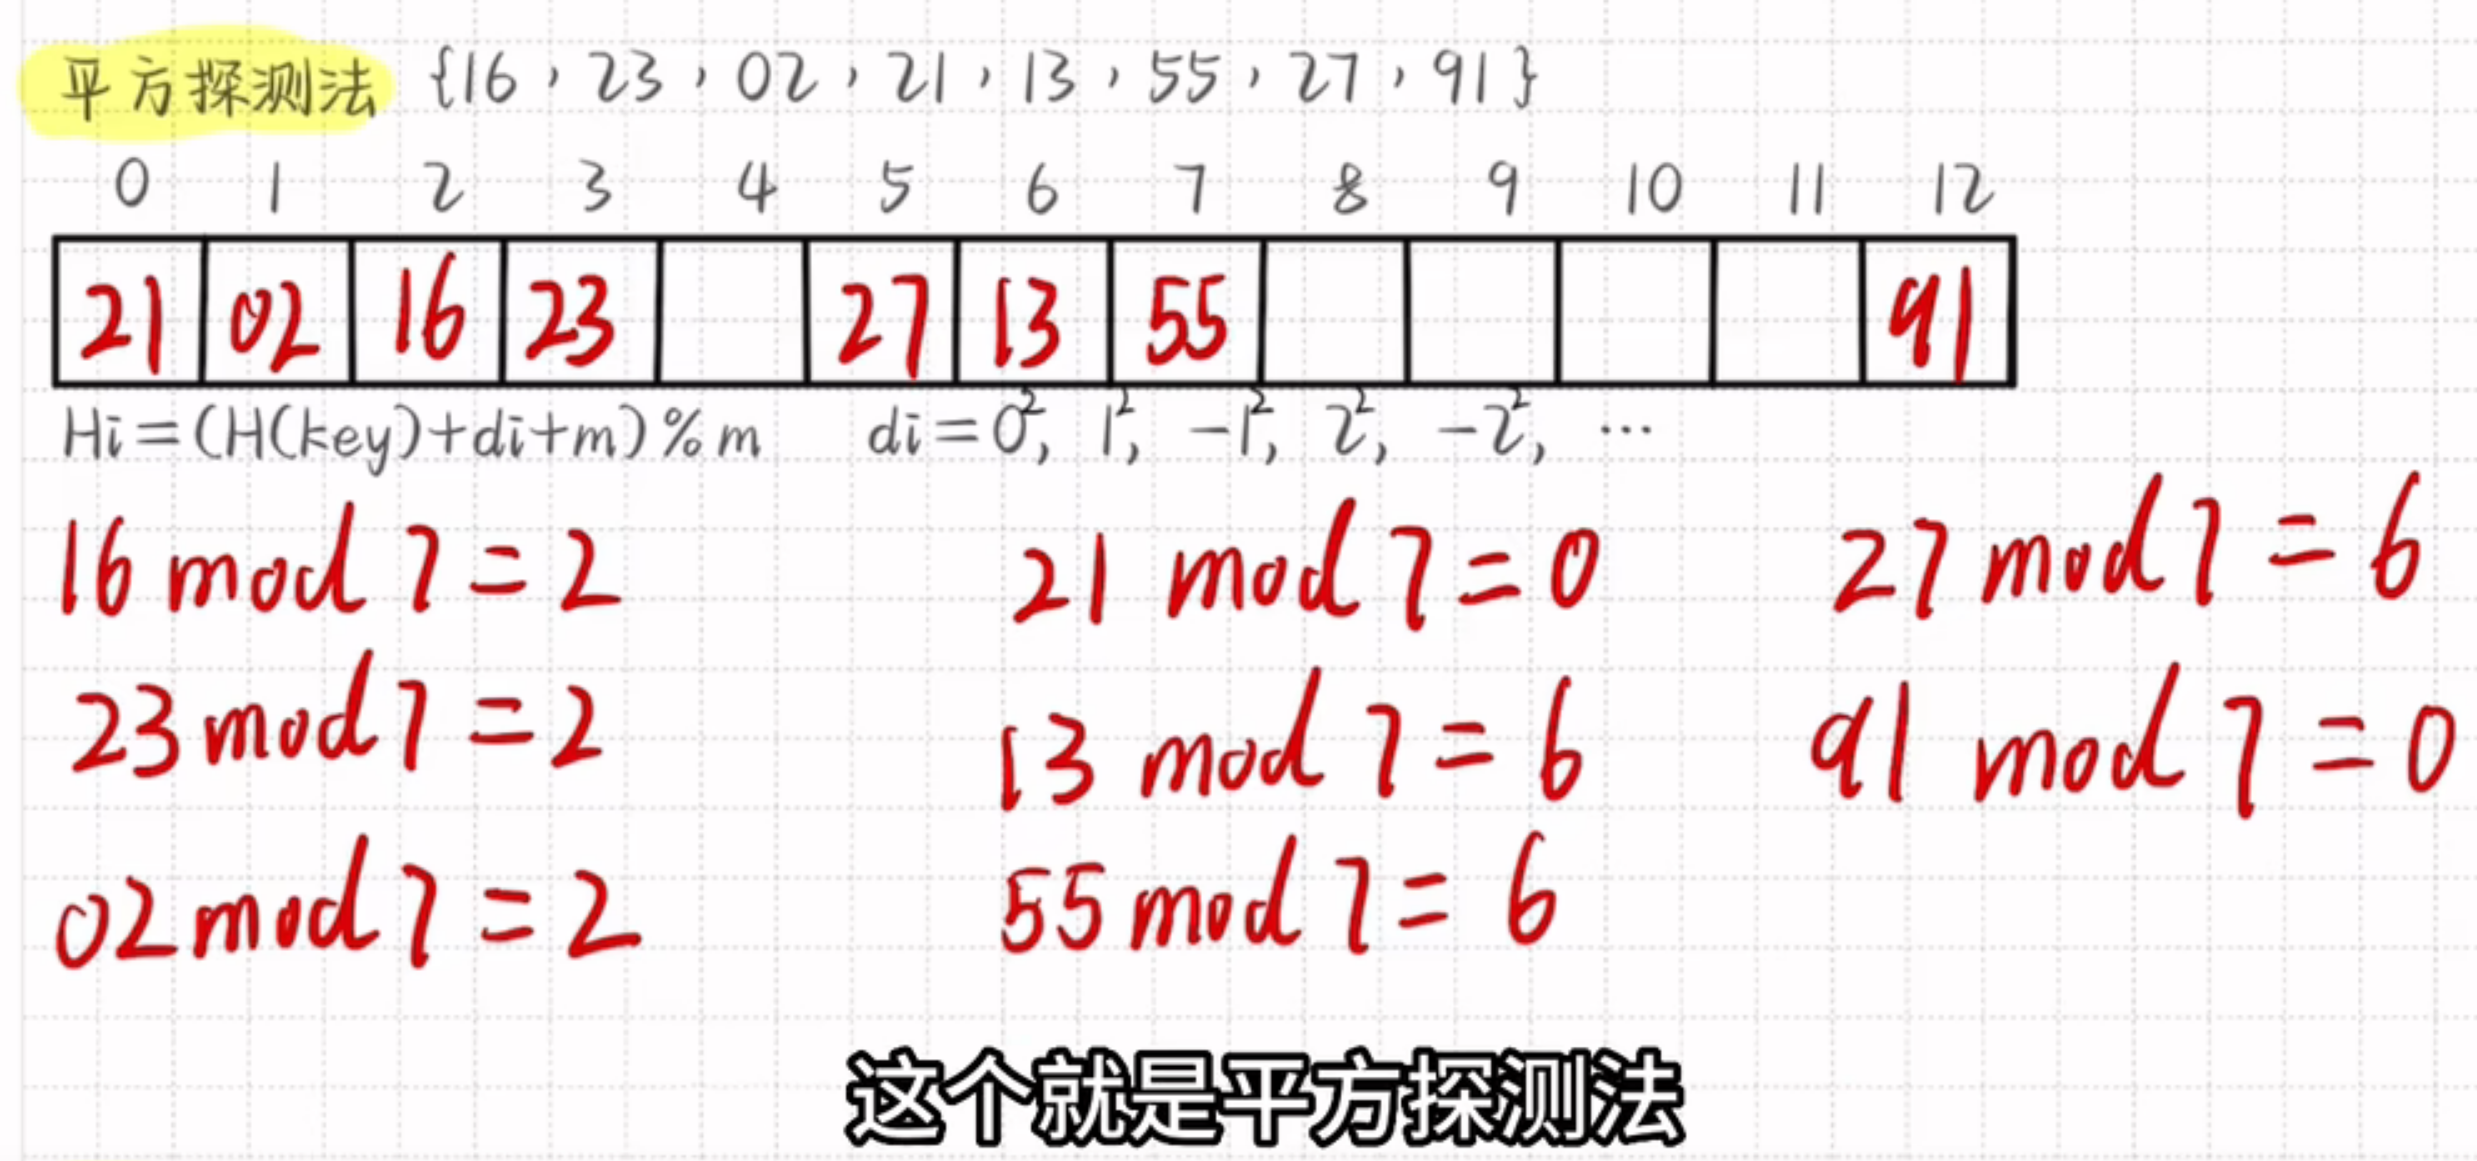 平方探测法 {16，23，02，21，13，55，27，91}
0 1 2 3 4 5 6 7 8 9 10 11 12
21 02 16 23 27 13 55 91
Hi=(H(key)+di+m)%m di=0², 1², -1², 2², -2², …
16 mod 7=2 21 mod 7=0 27 mod 7=6
23 mod 7=2 13 mod 7=6 91 mod 7=0
02 mod 7=2 55 mod 7=6
这个就是平方探测法